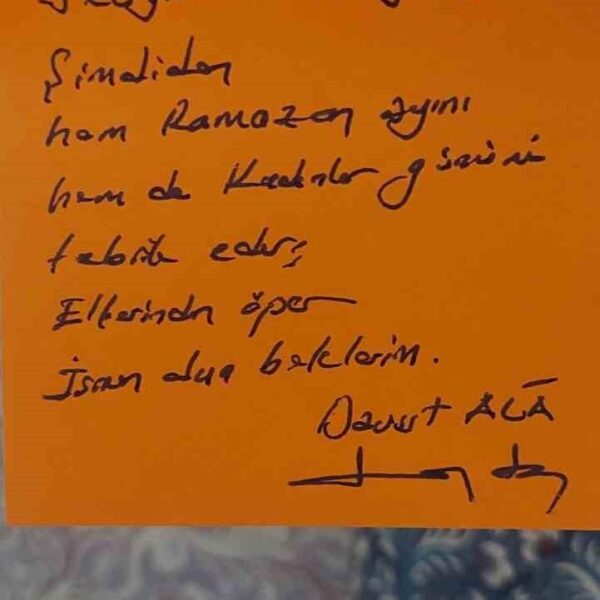 Şimdiden
hem Ramazan ayını
hem de Kadınlar gününü
tebrik eder;
Ellerinden öper
dua beklerim.
Davut ALĀ